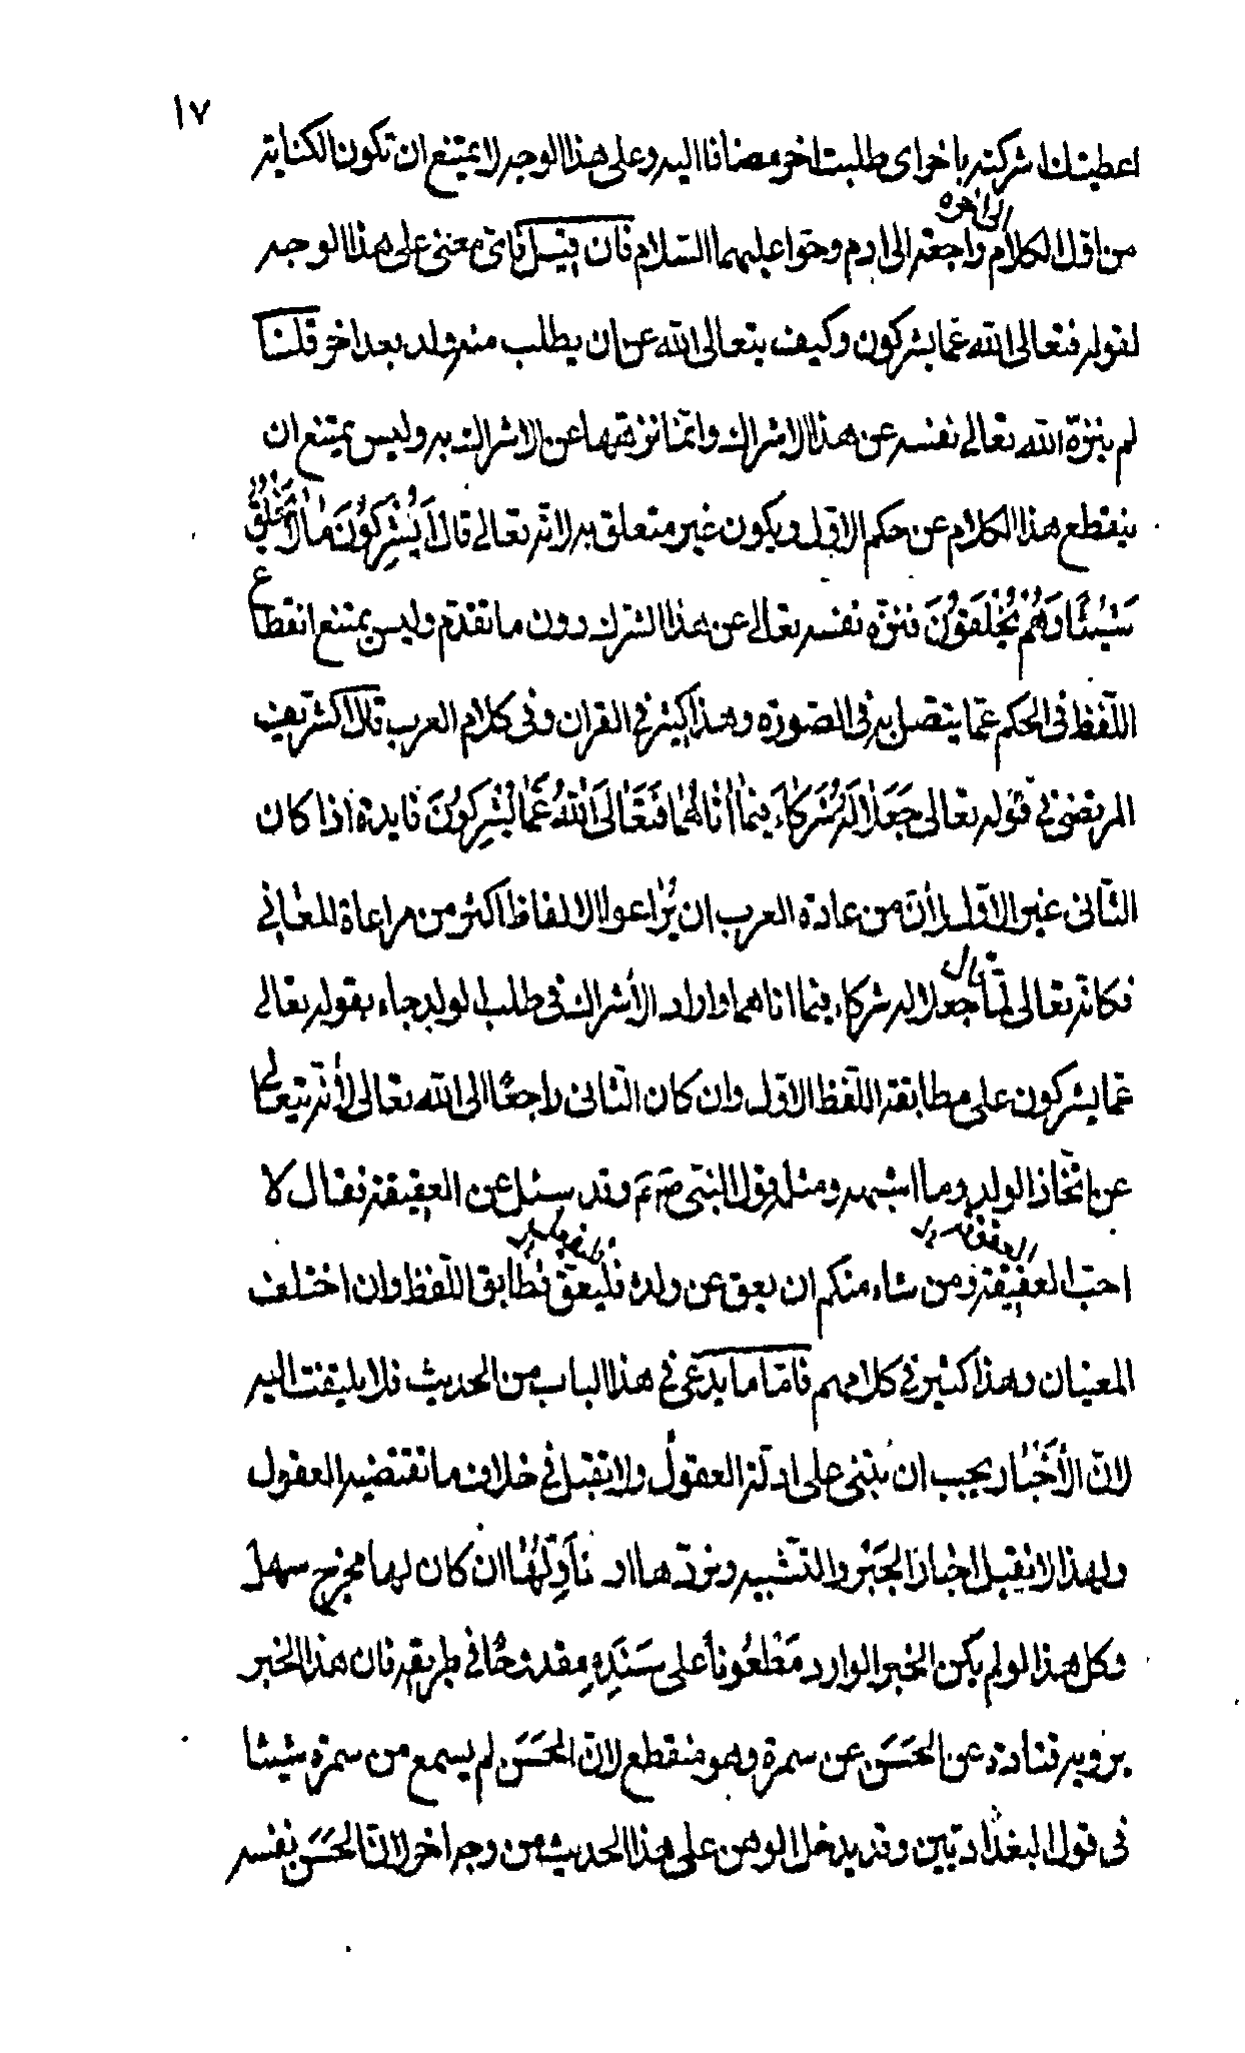 ١٧
اعطيتك اشركته باخر اى طلبت اخر مضافا اليه وعلى هذا الوجه لا يمتنع ان تكون الكناية
الى اخره
من اول الكلام راجعة الى ادم وحوا عليهما السّلام فان قيل فاىّ معنى على هذا الوجه
لقوله فتعالى الله عمّا يشركون وكيف يتعالى الله عن ان يطلب منه ولد بعد اخر قلنا
لم ينزّه الله تعالى نفسه عن هذا الاشراك وانّما نزّهها عن الاشراك به وليس يمتنع ان
ينقطع هذا الكلام عن حكم الاوّل ويكون غير متعلق به لانّه تعالى قال اَيُشْرِكُونَ مَا لاَ يَخْلُقُ
شَيْئًا وَهُمْ يُخْلَقُونَ فنزّه نفسه تعالى عن هذا الشرك دون ما تقدّم وليس يمتنع انقطاع
اللّفظ فى الحكم عمّا يتصل به فى الصّورة وهذا كثير فى القران وفى كلام العرب قال الشّريف
المرتضى فى قوله تعالى جَعَلاَ لَهُ شُرَكَاءَ فيمَا اٰتَاهُمَا فَتَعَالَى اللهُ عَمَّا يُشْرِكُونَ فايدة اذا كان
الثّانى غير الاوّل لأنّ من عادة العرب ان يُراعوا الالفاظ اكثر من مراعاة المعانى
قال
فكانّه تعالى لمّا جعلا له شركاء فيما اتاهما واراد الأشراك فى طلب الولد جاء بقوله تعالى
عمّا يشركون على مطابقة اللّفظ الاوّل وان كان الثّانى راجعًا الى الله تعالى لأنّه يتعالى
عن اتّخاذ الولد وما اشبهه ومثله قول النبىّ صم وقد سئل عن العقيقة فقال لا
احبّ العقيقة ومن شاء منكم ان يعق عن ولده فليعقّ فطابق اللّفظ وان اختلف
المعنيان وهذا كثير فى كلامهم فامّا ما يدّعى فى هذا الباب من الحديث فلا يلتفت اليه
لانّ الأَخْبَار يجب ان تبنى على ادلّة العقول ولا يقبل فى خلاف ما تقتضيه العقول
ولهذا لا نقبل اخبار الجَبْر والتّشبيه ونردّها او نتأوّلها ان كان لها مخرج سهل
فكل هذا لو لم يكن الخبر الوارد مَطْعُونًا على سَنَدِهِ مقدوحًا فى طريقه فان هذا الخبر
يرويه قتادة عن الحَسَن عن سمرة وهو منقطع لانّ الحَسَن لم يسمع من سمرة شيئا
فى قول البغداديّين وقد يدخل الوهن على هذا الحديث من وجه اخر لانّ الحَسَن نفسه